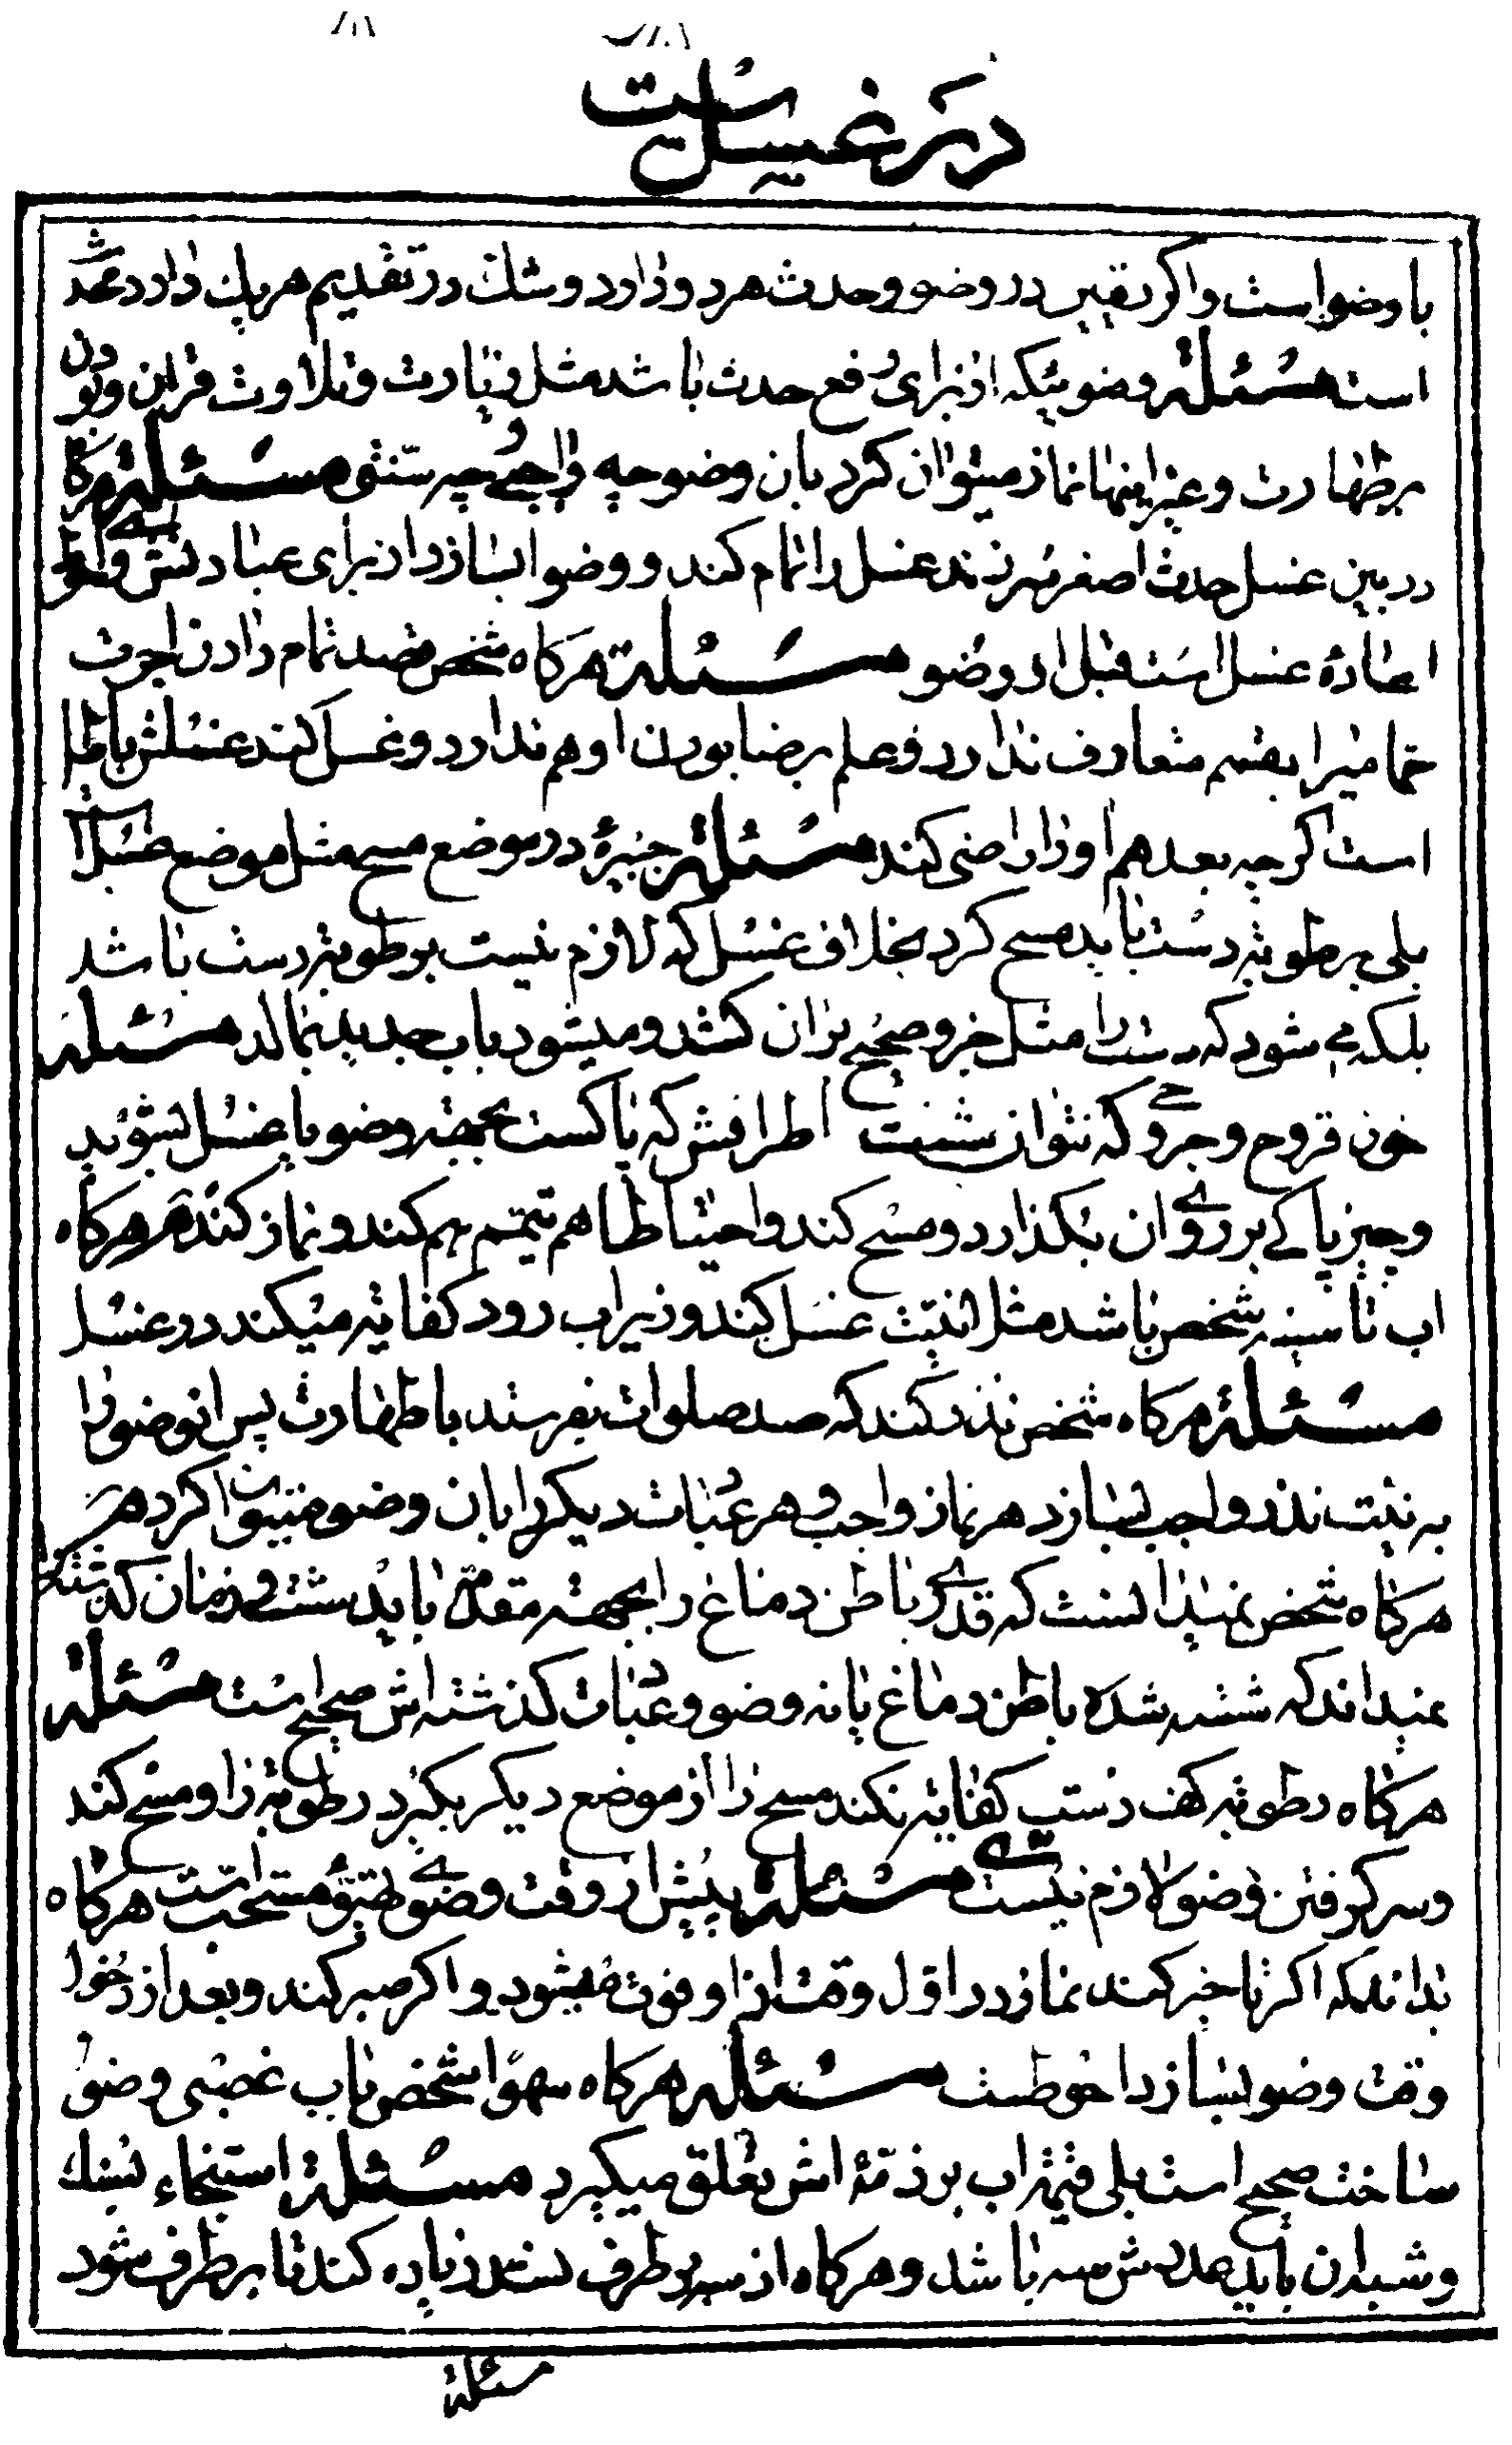 در غسل است
با وضو است و اکر یقین در وضو و حدث هر دو دارد و شك در تقدیم هر یك دارد محدث
است مسئلة وضوییکه از برای رفع حدث باشد مثل زیارت و تلاوت قران و بودن
بر طهارت و غیر اینها نماز میتوان کرد بان وضو چه واجبی و چه سنتی مسئلة هرکاه
در بین غسل حدث اصغر سر زند غسل را تمام کند و وضو بسازد از برای عبادتش و احوط
اعادۀ غسل است قبل از وضو مسئلة هرکاه شخص قصد تمام دادن اجرت
حمامی را بقسم متعارف ندارد و علم برضا بودن او هم ندارد و غسل کند غسلش باطل
است اکرچه بعد هم او را راضی کند مسئلة جبیرۀ در موضع مسح مثل موضع غسل است
بلی برطوبة دست باید مسح کرد بخلاف غسل که لازم نیست برطوبة دست باشد
بلکه می شود که دست را مثل جزو صحیح بران کشد و میشود باب جدید بمالد مسئلة
خون قروح و جروحی که نتوان شست اطرافش که پاکست بجهة وضو یا غسل بشوید
و چیز پاکی بر روی ان بکذارد و مسح کند و احتیاطا هم تیمم هم کند و نماز کند هرکاه
اب تا سینه شخص باشد مثلا نیت غسل کند و زیر اب رود کفایة میکند در غسل
مسئلة هرکاه شخص نذر کند که صد صلوات بفرستد با طهارت پس انوضو را
به نیت نذر واجب بسازد هر نماز واجب و هر عبادت دیکر را بان وضو میتوان کرد
هرکاه شخص نمیدانست که قدری باطن دماغ را بجهة مقدمه باید شست و زمان که شنید
نمیداند که شسته شده باطن دماغ یا نه وضو و عبادات کذشته اش صحیح است مسئلة
هرکاه رطوبة کف دست کفایة نکند مسح را از موضع دیکر بکیرد رطوبة را و مسح کند
و سر کرفتن وضو لازم نیست مسئلة پیش از وقت وضوی تهیؤ مستحب است هرکاه
بداند که اکر تاخیر کند نماز در اوّل وقت از او فوت میشود و اکر صبر کند و بعد از دخول
وقت وضو بسازد احوطست مسئلة هرکاه سهوًا شخص باب غصبی وضو
ساخت صحیح است بلی قیمة اب بر ذمّۀ اش تعلق میکیرد مسئلة استنجاء بسنك
و شبه ان باید عددش سه باشد و هرکاه از سه برطرف نشد زیاده کند تا برطرف شود
مسئلة